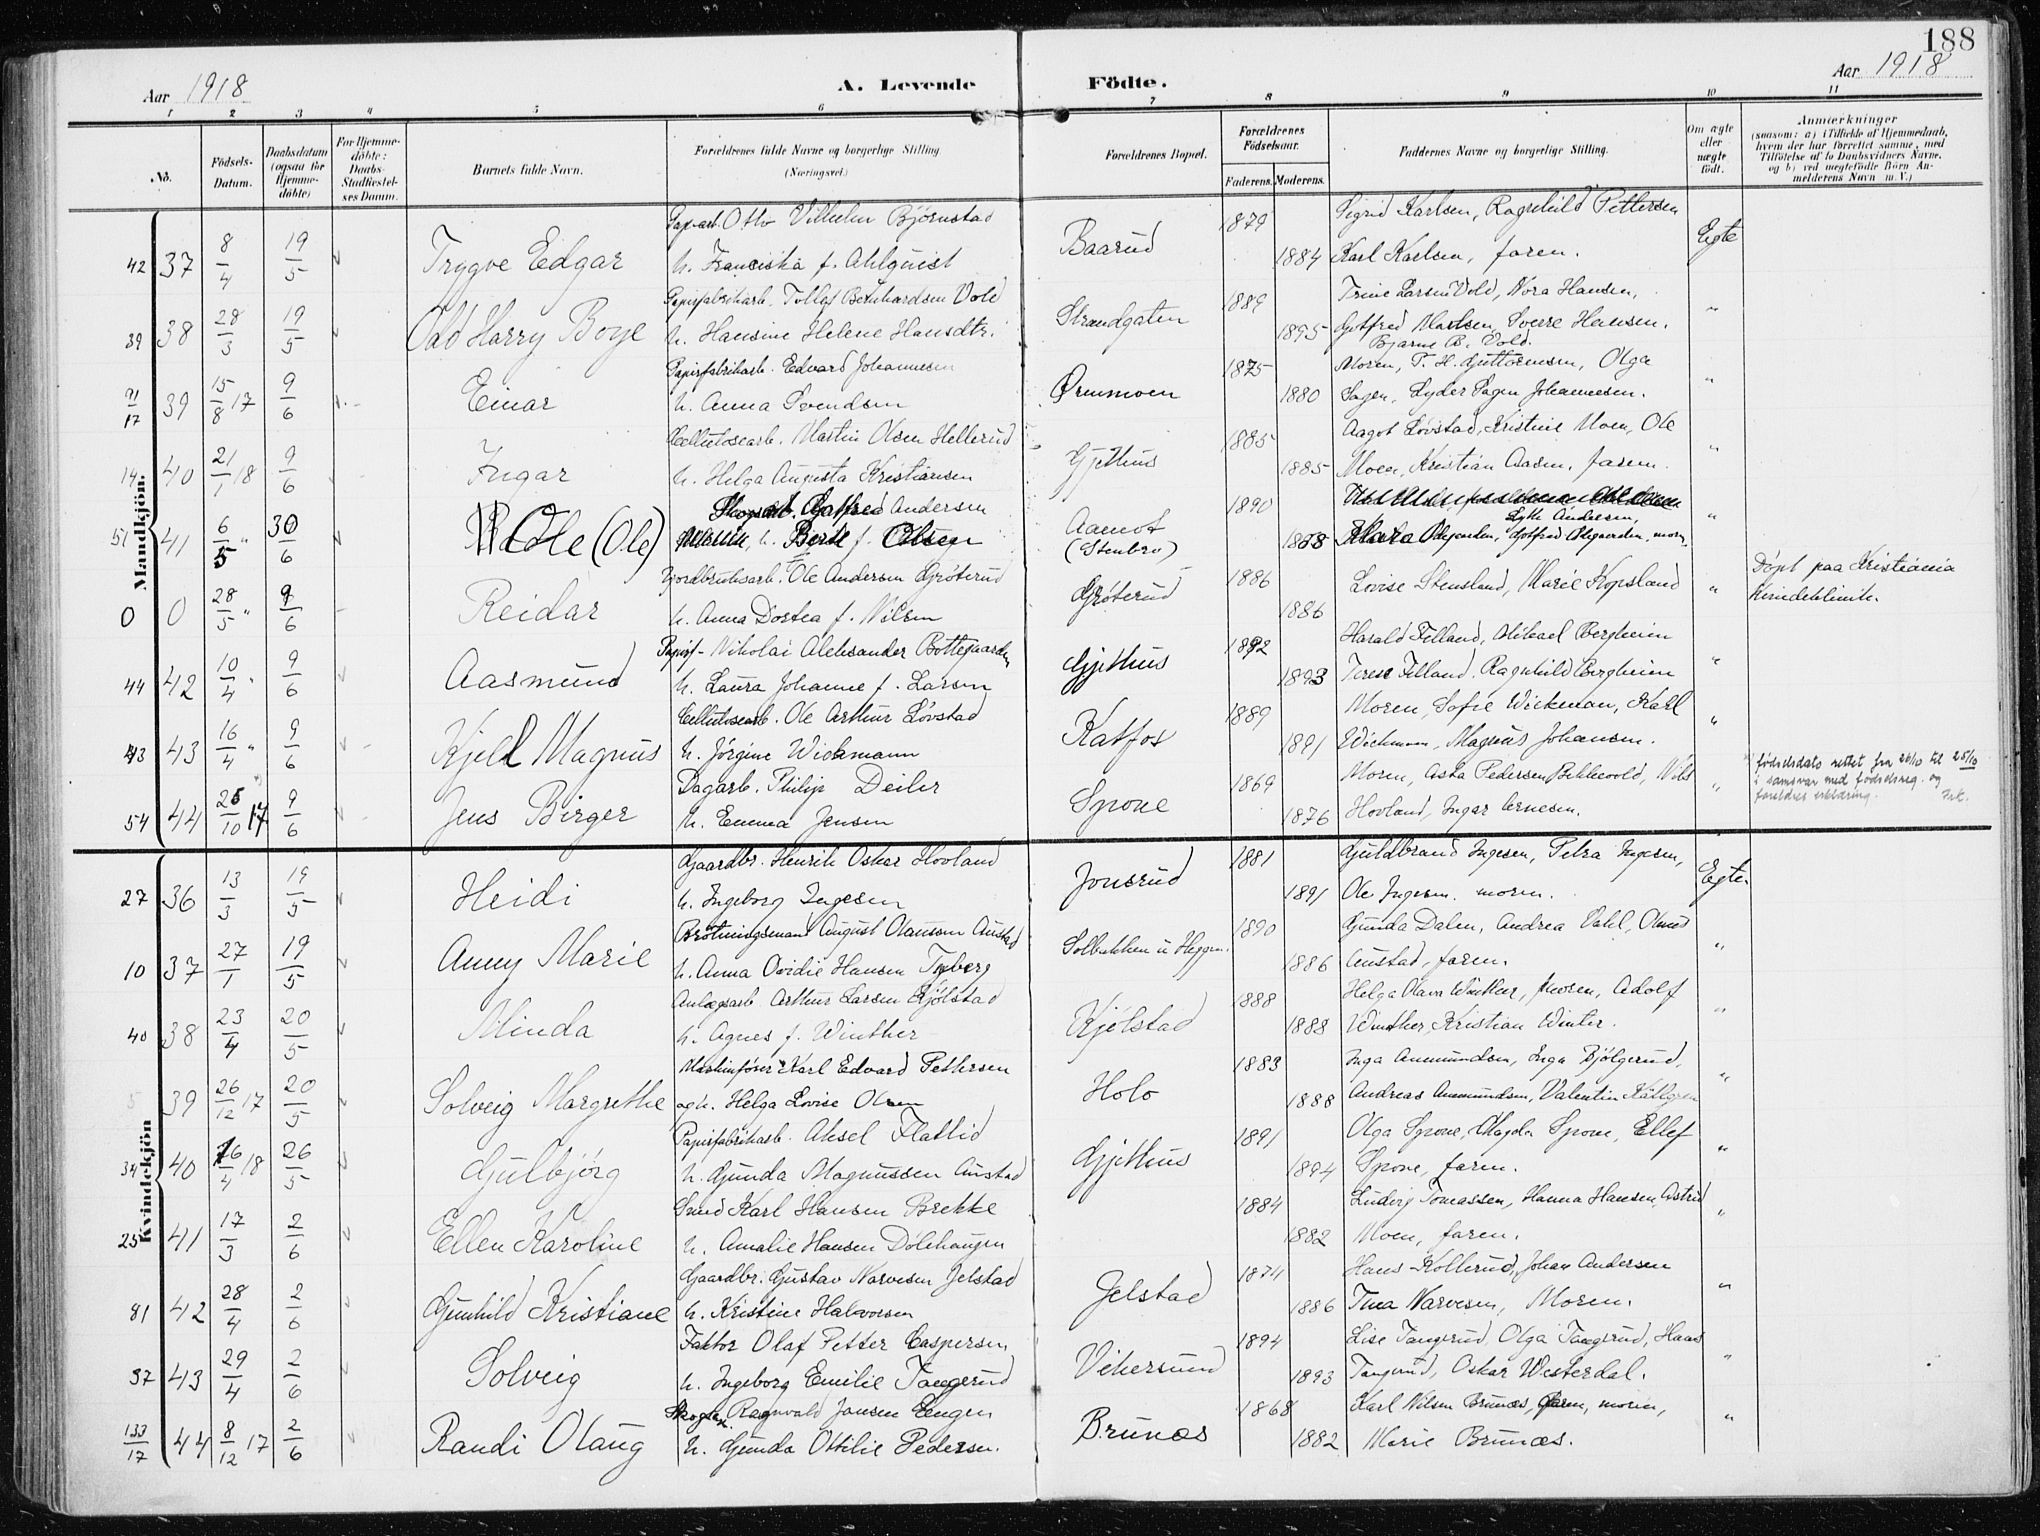 188
Aar 1918
A. Levende Födte.
Aar 1918
1 2 3 4 5 6 7 8 9 10 11
No.
Födsels-Datum.
Daabsdatum (ogsaa for Hjemme-döbte)
For Hjemme-döbte: Daabs-Stadfæstel-ses Datum.
Barnets fulde Navn.
Forældrenes fulde Navne og borgerlige Stilling. (Næringsvei.)
Forældrenes Bopæl.
Forældrenes Födselsaar.
Faderens. Moderens.
Faddernes Navne og borgerlige Stilling.
Om ægte eller uægte födt.
Anmærkninger
(saasom: a) i Tilfælde af Hjemmedaab, hvem der har forrettet samme, med Tilföielse af to Daabsvidners Navne, og b) ved uægtefödte Börn Anmelderens Navn m. V.)
Mandkjön.
42 37 8/4 19/5 Trygve Edgar Otto Vilhelm Bjørnstad Baarud 1879 Sigrid Karlsen, Ragnhild Pettersen Egte
h. Franciska f. Ahlquist 1884 Karl Karlsen, faren.
39 38 28/3 19/5 Odd Harry Boye Papirfabrikarb. Tollef Bernhardsen Vold Strandgaten 1889 Trine Larsen Vold, Nora Hansen, "
h. Hansine Helene Hansdtr. 1895 Gotfred Madsen, Sverre Hansen.
Bjarne B. Vold.
91/17 39 15/8 17 9/6 Einar Papirfabrikarb. Edvard Johannesen Ørenmoen 1875 Moren, T. H. Guttormsen, Olga "
h. Anna Svendsen 1880 Sagen, Lyder Sagen Johannesen.
14 40 21/1 18 9/6 Ingar Cellulosearb. Martin Olsen Hellerud Gjethus 1885 Aagot Løvstad, Kristine Moen, Ole "
h. Helga Augusta Kristiansen 1885 Moen, Kristian Aasen, faren.
51 41 6/5 " 30/6 Odle (Ole) Gotfred Andersen Aamot 1890 "
h. Berte f. Olsen (Stenbro) Lyth Andersen, Gotfred moren.
0 0 28/5 " 9/6 Reidar Jordbruksarb. Ole Andersen Grøterud Grøterud 1886 Lovise Stensland, Marie Kopsland " Døpt paa Kristiania
h. Anna Dortea f. Nilsen 1886 Kvindeklinik.
44 42 10/4 " 9/6 Aasmund Papirf. Nikolai Aleksander Bottegaarden Gjethus 1892 Harald Filland, Mikael Bergheim "
h. Laura Johanne f. Larsen 1893 Terese Filland, Ragnhild Bergheim
43 43 16/4 " 9/6 Kjell Magnus Cellulosearb. Ole Arthur Løvstad Katfos 1889 Moren, Sofie Wickman, Karl "
h. Jørgine Wickmann 1891 Wickmann, Magnus Johansen.
54 44 25/10 17 9/6 Jens Birger Dagarb. Philip Deiler Spone 1869 Moren, Asta Pedersen Bekkevold, Nils " fødselsdato rettet fra 26/10 til 25/10
h. Emma Jensen 1876 Hovland, Ingar Arnesen. i samsvar med fødselsreg. og
foreldres erklæring.
Kvindekjön
27 36 13/3 19/5 Heidi Gaardbr. Henrik Oskar Hovland Jonsrud 1881 Guldbrand Ingesen, Petra Ingesen, Egte.
h. Ingeborg Ingesen 1891 Ole Ingesen, moren.
10 37 27/1 19/5 Anny Marie August Olaussen Austad Solbakken u Heggen. 1890 Gunda Dalen, Andrea Dahl, Olaus "
h. Anna Ovidie Hansen Tyberg 1886 Austad, faren.
40 38 23/4 20/5 Minda Anlægsarb. Arthur Larsen Kjölstad Kjölstad 1888 Helga Olava Winther, moren, Adolf "
h. Agnes f. Winther 1888 Winther, Kristian Winter.
5 39 26/12 17 20/5 Solveig Margrethe Karl Edvard Pettersen Holo 1883 Inga Ammundsen, Inga Bjølgerud, "
og h. Helga Lovise Olsen 1888 Andreas Ammundsen, Valentin Källgren
34 40 16/4 18 26/5 Gulbjörg Papirfabrikarb. Aksel Flattid Gjethus 1891 Olga Spone, Magda Spone, Ellef "
h. Gunda Magnussen Austad 1894 Spone, faren.
25 41 17/3 2/6 Ellen Karoline Smed Karl Hansen Brekke 1884 Ludvig Tomassen, Hanna Hansen, Astrid "
h. Amalie Hansen Dölehaugen 1882 Moen, faren.
81 42 28/4 2/6 Gunhild Kristiane Gaardbr. Gustav Narvesen Jelstad Jelstad 1874 Hans Kollerud, Johan Andersen "
h. Kristine Halvorsen 1886 Tina Narvesen, Moren.
37 43 29/4 2/6 Solveig Faktor Olaf Petter Caspersen Vikersund 1894 Lise Tangerud, Olga Tangerud, Hans "
h. Ingeborg Emilie Tangerud 1893 Tangerud, Oskar Westerdal.
133/17 44 8/12 17 2/6 Randi Olaug Ragnvald Jansen Engen Brunæs 1868 Karl Nilsen Brunæs, faren, moren, "
h. Gunda Ottilie Pedersen. 1882 Marie Brunæs.